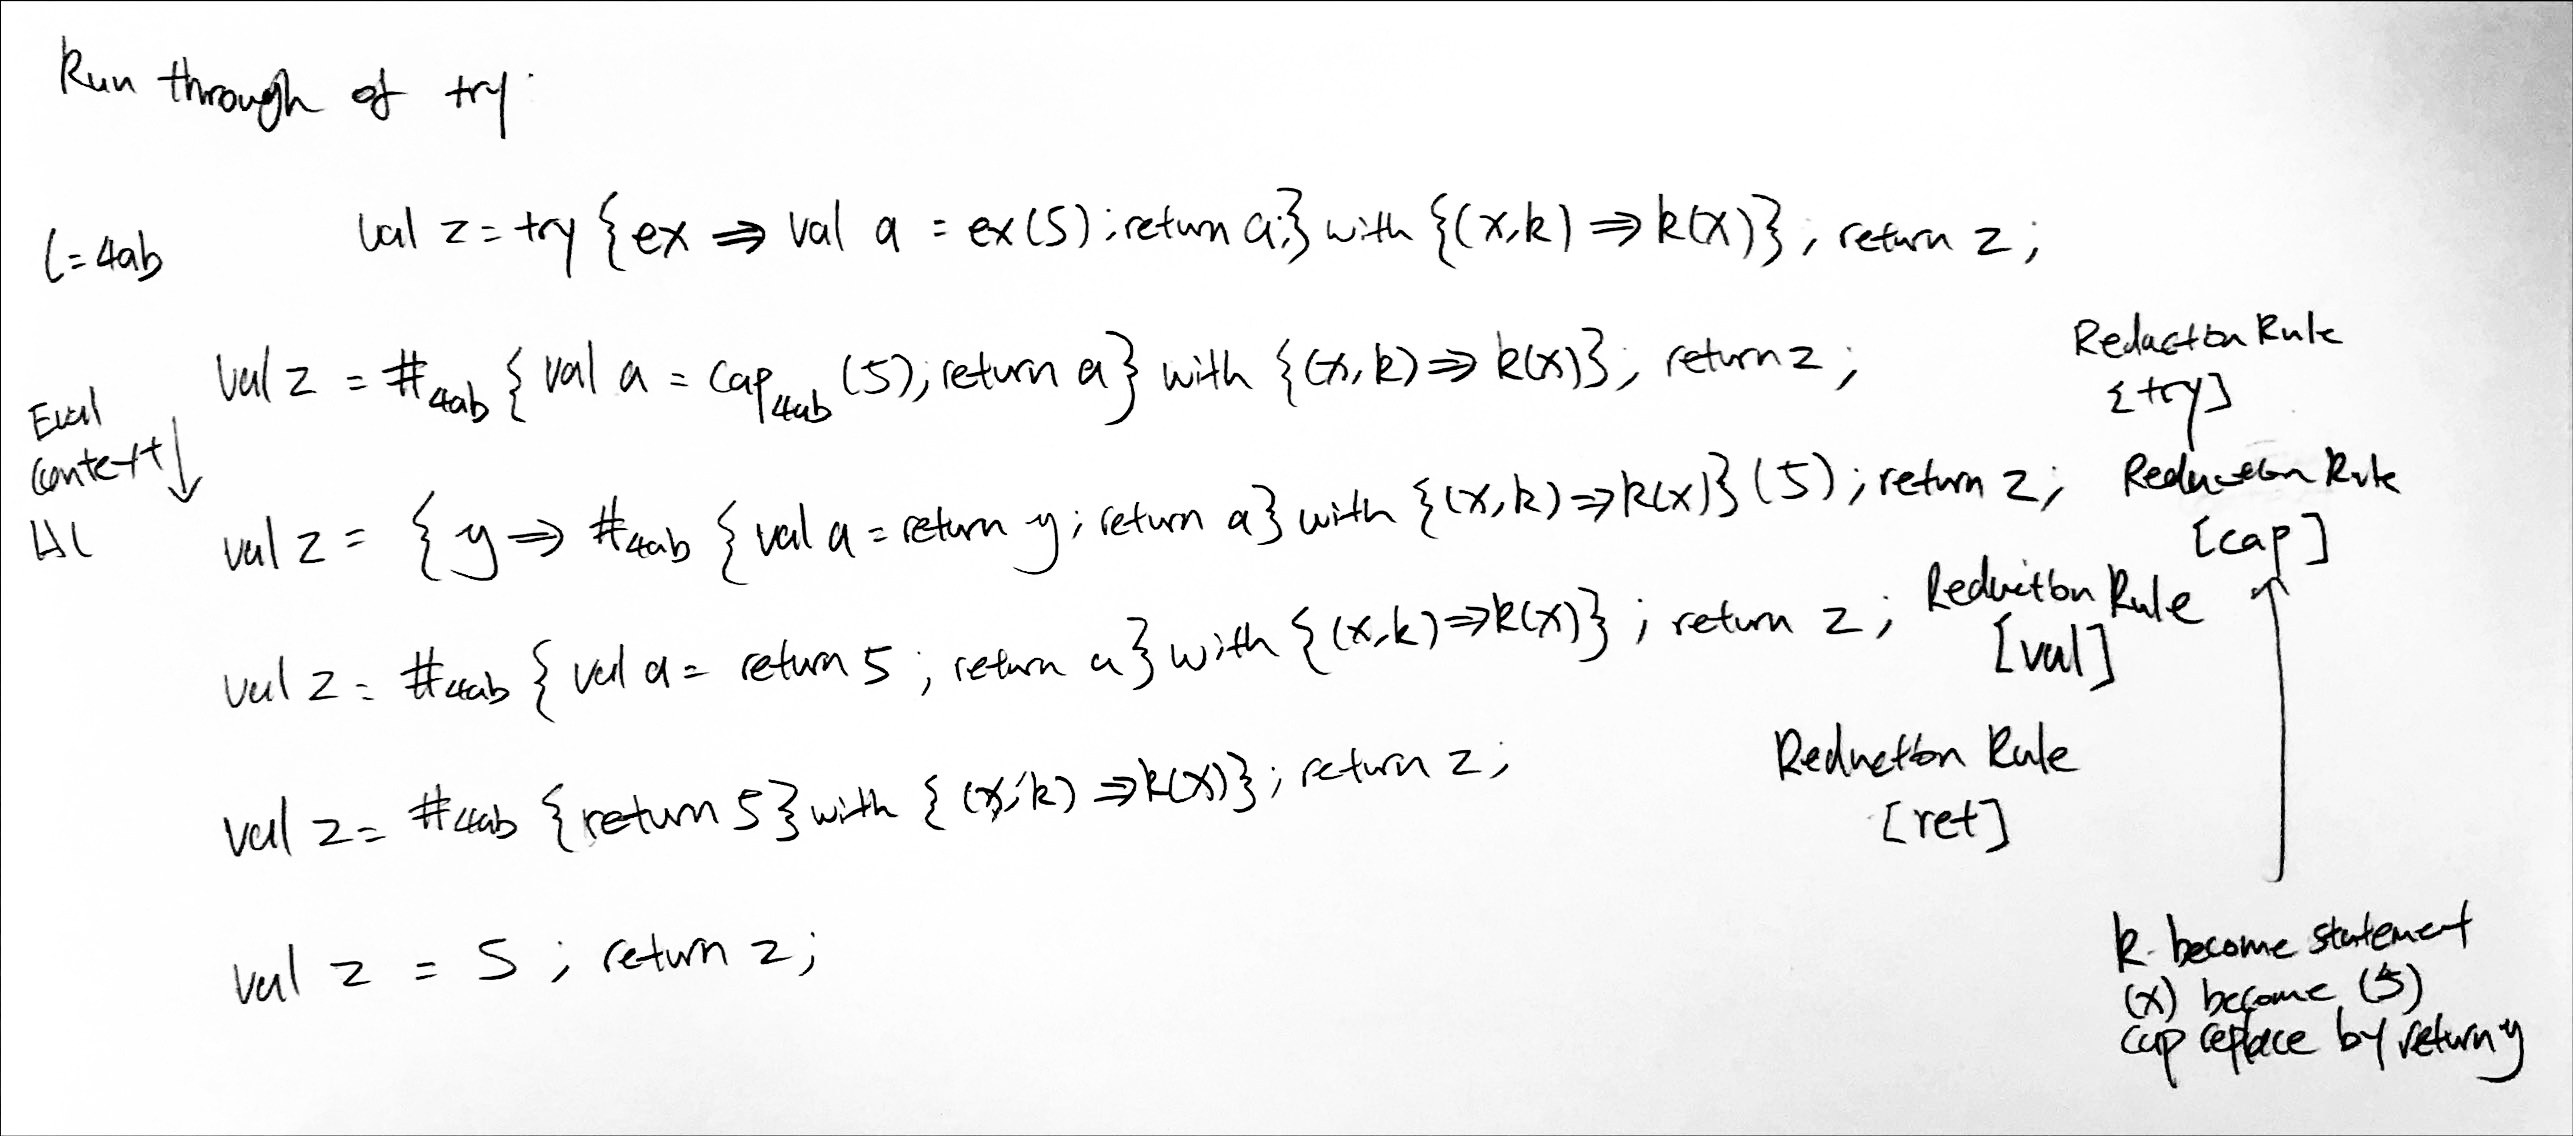 Run through of try.
l=4ab
val z = try {ex ⇒ val a = ex(5); return a;} with {(x,k) ⇒ k(x)}; return z;
val z = #4ab { val a = cap4ab (5); return a} with {(x,k) ⇒ k(x)}; return z;
Reduction Rule
[try]
Eval
Context ↓
val z = {y ⇒ #4ab {val a = return y; return a} with {(x,k) ⇒ k(x)} (5); return z;
Reduction Rule
[cap]
val z = #4ab { val a = return 5; return a} with {(x,k) ⇒ k(x)}; return z;
Reduction Rule
[val]
val z = #4ab {return 5} with {(x,k) ⇒ k(x)}; return z;
Reduction Rule
[ret]
val z = 5; return z;
k become statement
(x) become (5)
cap replace by return y